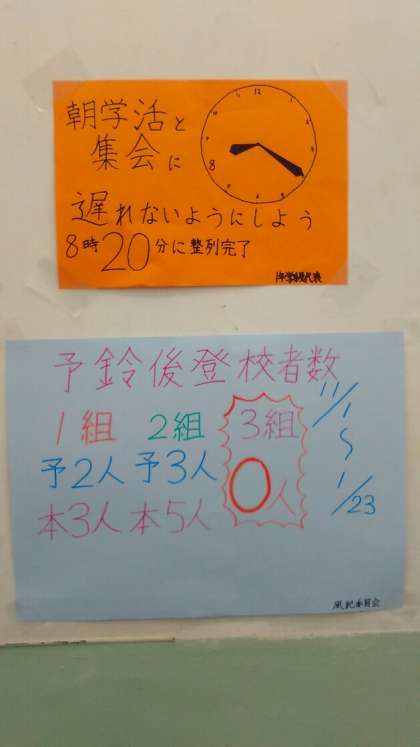 朝学活と
集会に
遅れないようにしよう
8時20分に整列完了
12
8
予鈴後登校者数
11/1
〜
1/23
1組 2組 3組
予2人 予3人 0人
本3人 本5人
風紀委員会